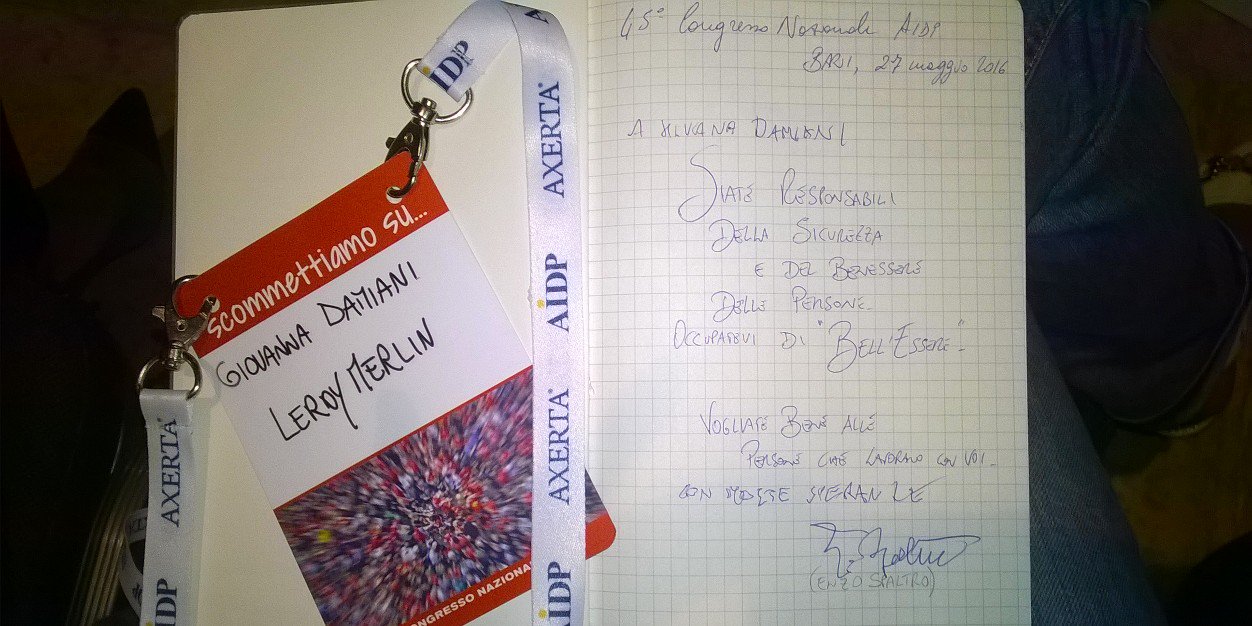 AIDP
AXERTA
AIDP
AXERTA
AIDP
AXERTA
AIDP
scommettiamo su...
GIOVANNA DAMIANI
LEROY MERLIN
CONGRESSO NAZIONA
45° Congresso Nazionale AIDP
BARI, 27 maggio 2016
A SILVANA DAMIANI
SIATE RESPONSABILI
DELLA SICUREZZA
E DEL BENESSERE
DELLE PERSONE
OCCUPATEVI DI "BELL'ESSERE"
VOGLIATE BENE ALLE
PERSONE CHE LAVORANO CON VOI
CON MOLTE SPERANZE
(ENZO SPALTRO)